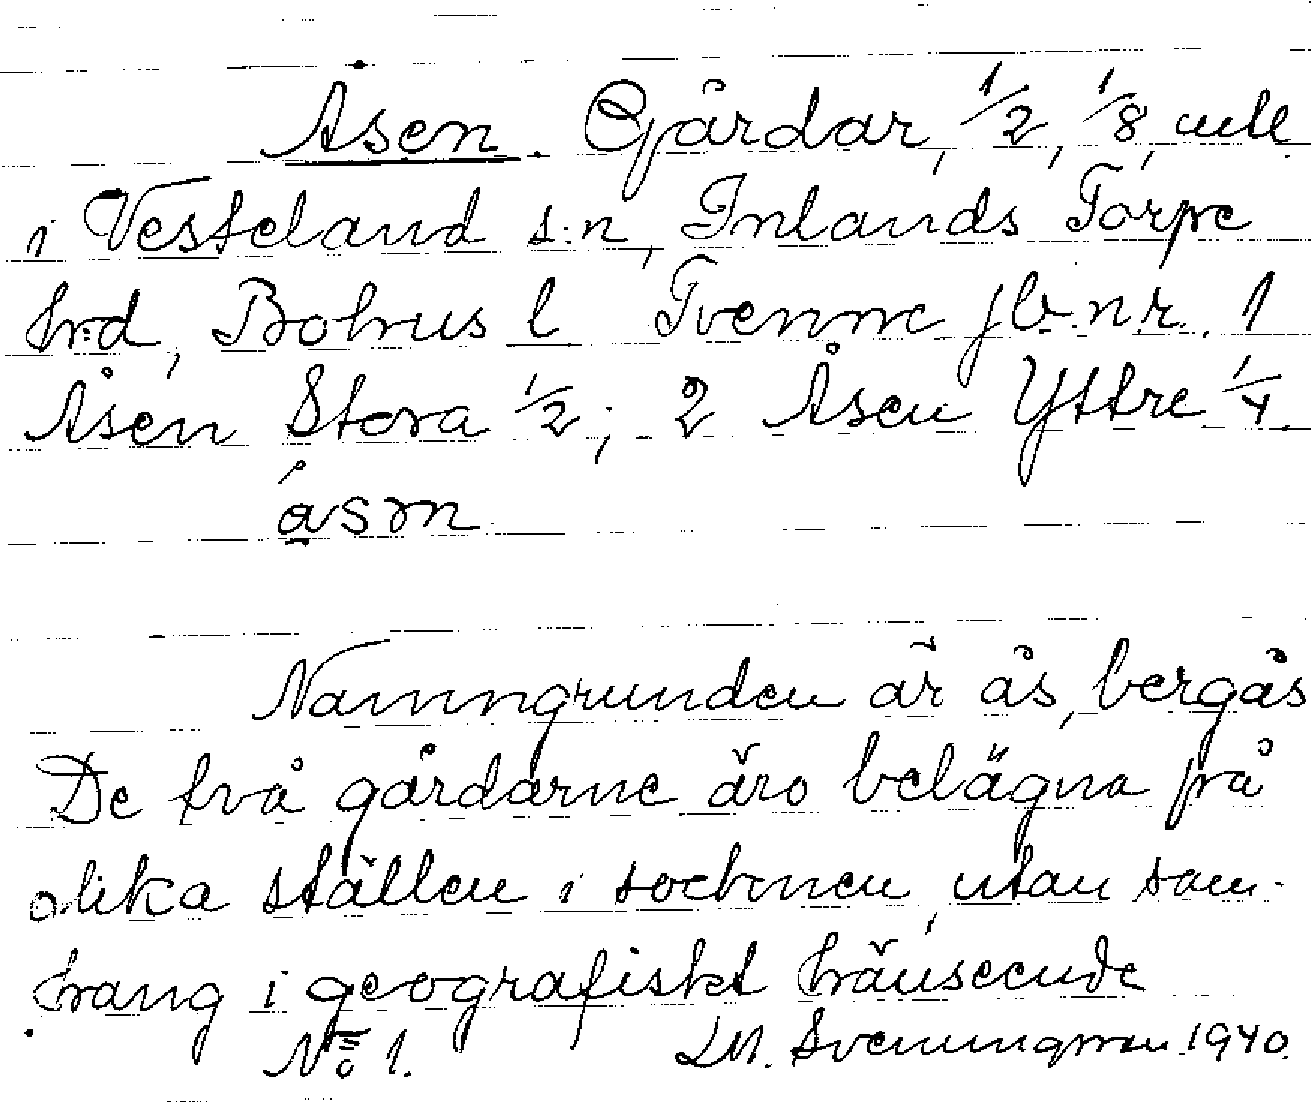 Åsen. Gårdar, 1/2, 1/8, mtl
i Vesteland s:n, Inlands Torpe
hrd, Bohus l. Tvenne jb. nr. 1
Åsen Stora 1/2; 2 Åsen Yttre 1/4.
Namngrunden är ås, bergås
De två gårdarne äro belägna på
olika ställen i socknen, utan sam-
hang i geografiskt hänseende
No 1. LM. Svenungsson 1940.